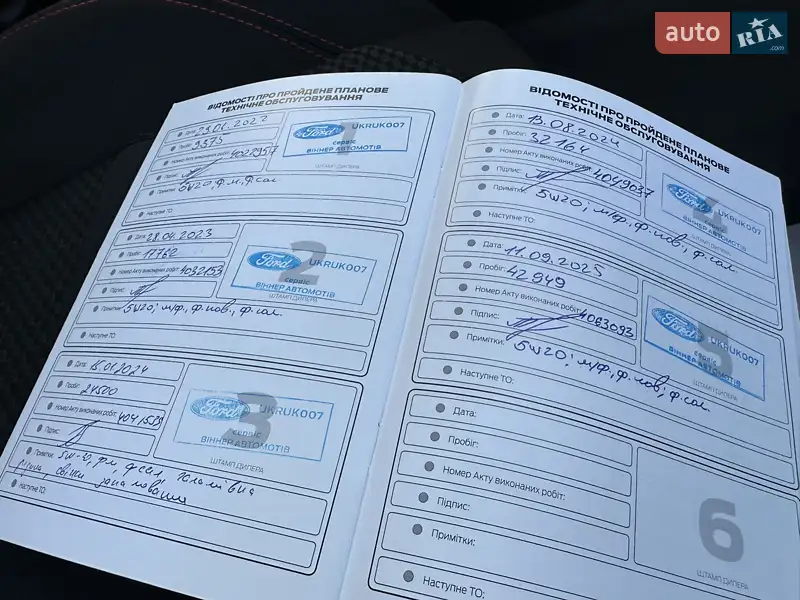 auto RIA .com
ВІДОМОСТІ ПРО ПРОЙДЕНЕ ПЛАНОВЕ
ТЕХНІЧНЕ ОБСЛУГОВУВАННЯ
Дата: 23.01.2022
Пробіг: 9375
Номер Акту виконаних робіт: 4028957
Підпис:
Примітки: 5w20, ф.м, ф.сал.
Наступне ТО:
1
Ford UKRUK007
сервіс
ВІННЕР АВТОМОТІВ
ШТАМП ДИЛЕРА
Дата: 28.04.2023
Пробіг: 17762
Номер Акту виконаних робіт: 4032153
Підпис:
Примітки: 5w20; м/ф., ф.пов., ф.сал.
Наступне ТО:
2
Ford UKRUK007
сервіс
ВІННЕР АВТОМОТІВ
ШТАМП ДИЛЕРА
Дата: 15.01.2024
Пробіг: 24500
Номер Акту виконаних робіт: 4041539
Підпис:
Примітки: 5w-20, ф.м, ф.сал, гальмівна
рідина свічки запалювання
Наступне ТО:
3
Ford UKRUK007
сервіс
ВІННЕР АВТОМОТІВ
ШТАМП ДИЛЕРА
ВІДОМОСТІ ПРО ПРОЙДЕНЕ ПЛАНОВЕ
ТЕХНІЧНЕ ОБСЛУГОВУВАННЯ
Дата: 13.08.2024
Пробіг: 32164
Номер Акту виконаних робіт: 4049037
Підпис:
Примітки: 5w20; м/ф., ф.пов; ф.сал.
Наступне ТО:
4
Ford UKRUK007
сервіс
ВІННЕР АВТОМОТІВ
ШТАМП ДИЛЕРА
Дата: 11.09.2025
Пробіг: 42949
Номер Акту виконаних робіт: 4063093
Підпис:
Примітки: 5w20; м/ф, ф.пов; ф.сал.
Наступне ТО:
5
Ford UKRUK007
сервіс
ВІННЕР АВТОМОТІВ
ШТАМП ДИЛЕРА
Дата:
Пробіг:
Номер Акту виконаних робіт:
Підпис:
Примітки:
Наступне ТО:
6
ШТАМП ДИЛЕРА